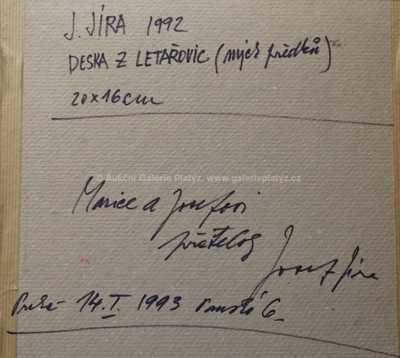 J. JÍRA 1992
DESKA Z LETAŘOVIC (mých předků)
20x16cm
© Aukční Galerie Platýz, www.galerieplatyz.cz
Marice a Josefovi
přátelsky Josef Jíra
Praha 14.I. 1993